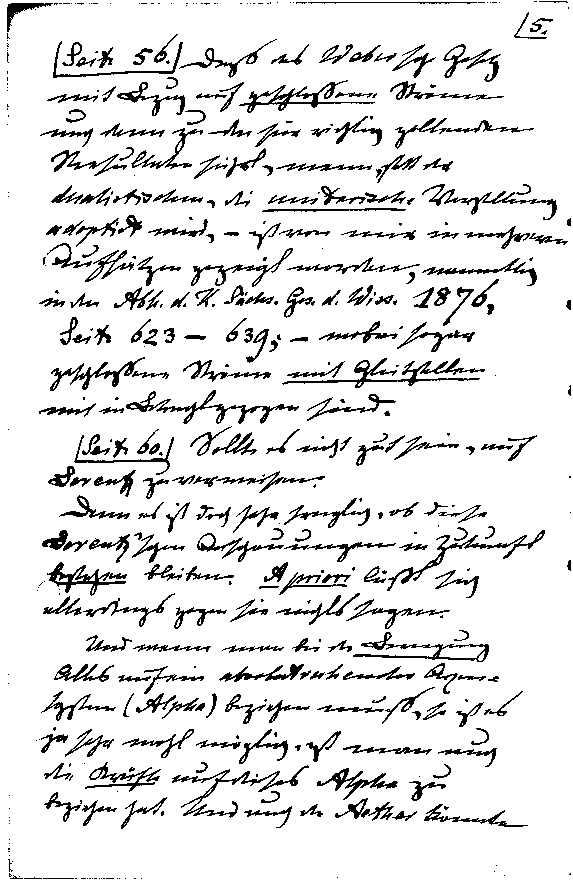 5.
[Seite 56.] Dass das Weber'sche Gesetz
mit Bezug auf geschlossene Ströme
auch dann zu den für richtig geltenden
Resultaten führt, wenn, statt der
dualistischen, die unitarische Vorstellung
adoptirt wird, – ist von mir in mehreren
Aufsätzen gezeigt worden, namentlich
in den Abh. d. K. Sächs. Ges. d. Wiss. 1876,
Seite 623 – 639; – wobei sogar
geschlossene Ströme mit Gleitstellen
mit in Betracht gezogen sind.
[Seite 60.] Sollte es nicht gut sein, auf
Lorentz zu verweisen.
Denn es ist doch sehr fraglich, ob diese
Lorentz'schen Anschauungen in Zukunft
bestehen bleiben. A priori lässt sich
allerdings gegen sie nichts sagen.
Und wenn man bei der Bewegung
Alles auf ein absolut ruhendes Axen-
system (Alpha) beziehen muss, so ist es
ja sehr wohl möglich, dass man auch
die Kräfte auf dieses Alpha zu
beziehen hat. Und auch der Aether könnte